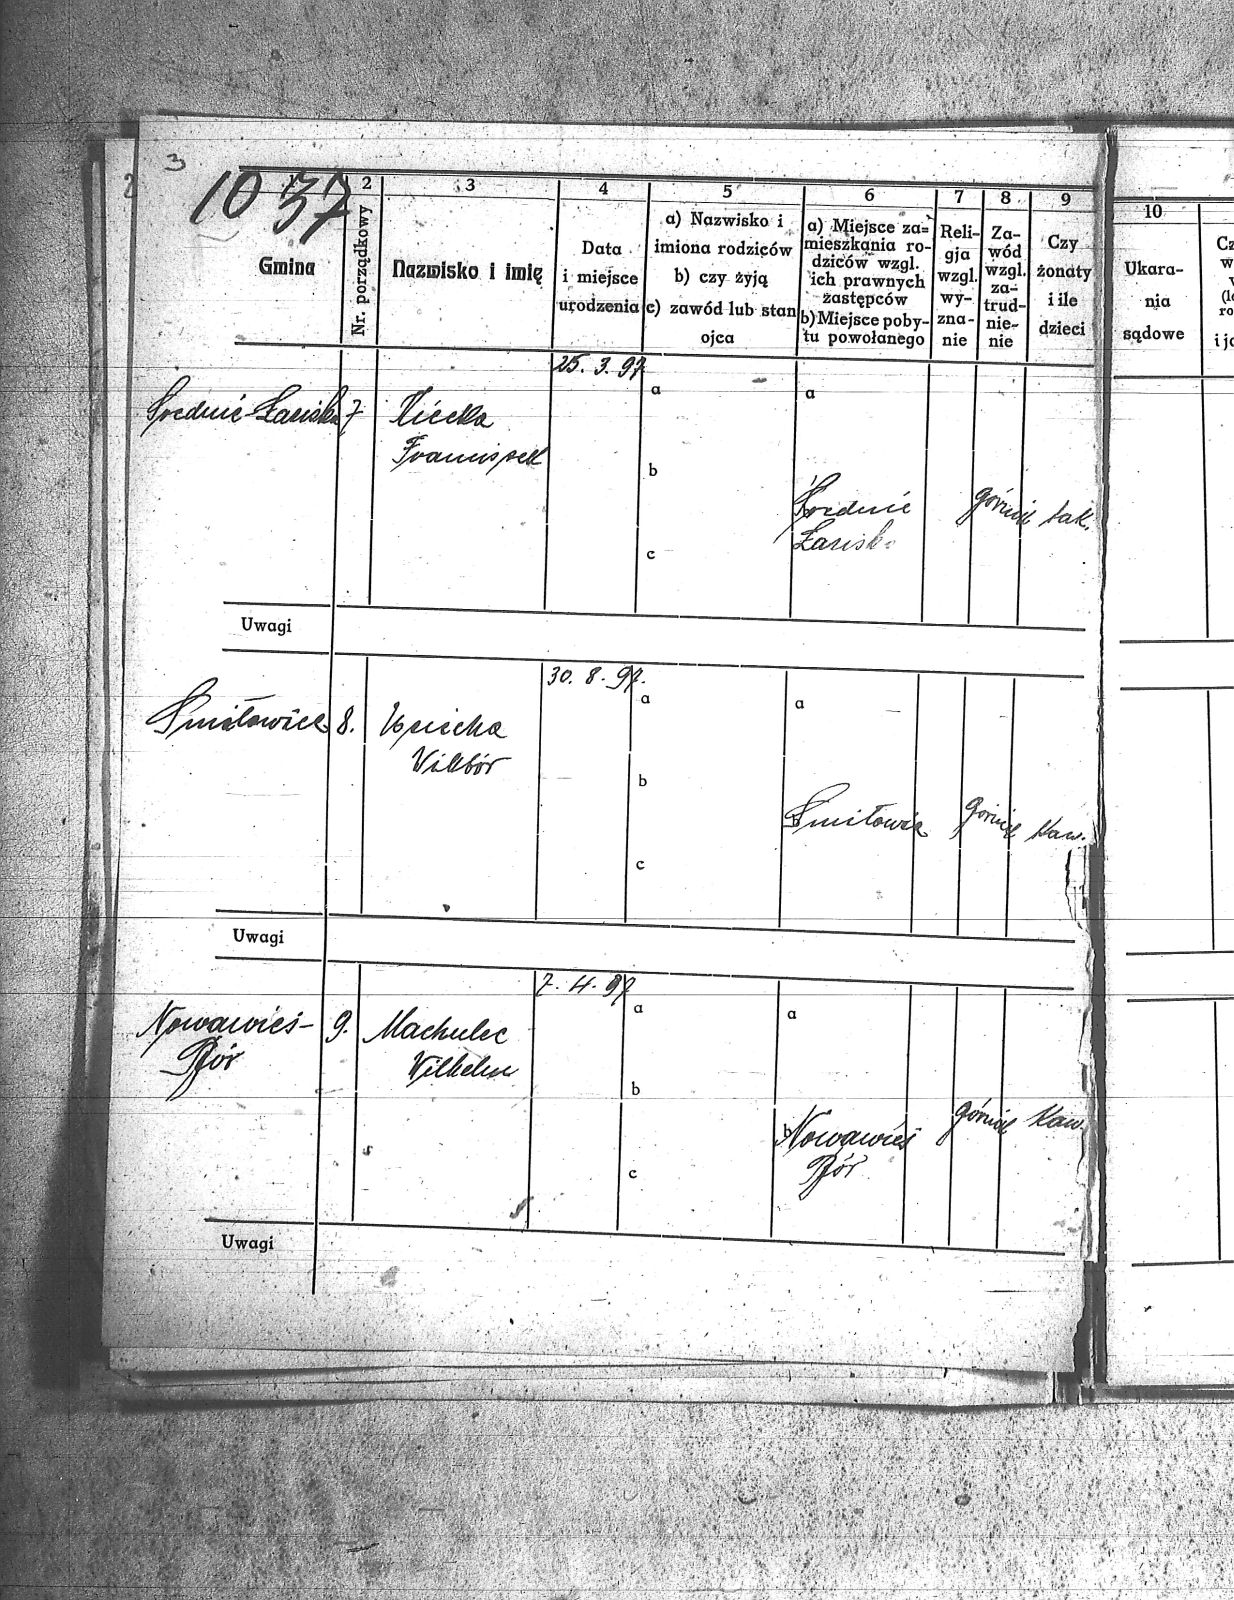 3
1037
1 2 3 4 5 6 7 8 9 10
Gmina
Nr. porządkowy
Nazwisko i imię
Data
i miejsce
urodzenia
a) Nazwisko i
imiona rodziców
b) czy żyją
c) zawód lub stan
ojca
a) Miejsce za=
mieszkania ro-
dziców wzgl.
ich prawnych
zastępców
b) Miejsce poby-
tu powołanego
Reli-
gja
wzgl.
wy-
zna-
nie
Za-
wód
wzgl.
za-
trud-
nie-
nie
Czy
żonaty
i ile
dzieci
Ukara-
nia
sądowe
25. 3. 97
Średnie Łaziska 7
Franciszek
a a
b
Średnie
Łaziska
górnik tak.
c
Uwagi
30. 8. 97.
Śmiłowice 8.
Wiktór
a a
b
b Śmiłowice górnik kaw.
c
Uwagi
7. 4. 97
Nowawieś- 9. Machulec
Wilhelm
a a
b
b Nowawieś górnik kaw.
c
Uwagi